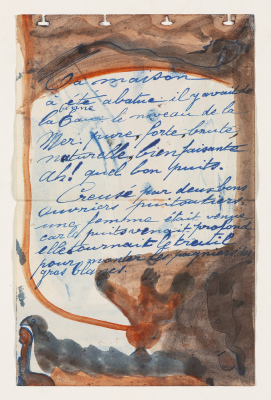 La maison
a été abatue. il y avait de
la signe
la Base le niveau de la
Mer. pure, forte, brute,
naturelle, bienfaisante
Ah! quel bon puits.
Creusé par deux bons
ouvriers puisatiers.
une femme était venue
car le puits venait profond
elle tournait le treuil
pour monter les pagniers
gros blancs.